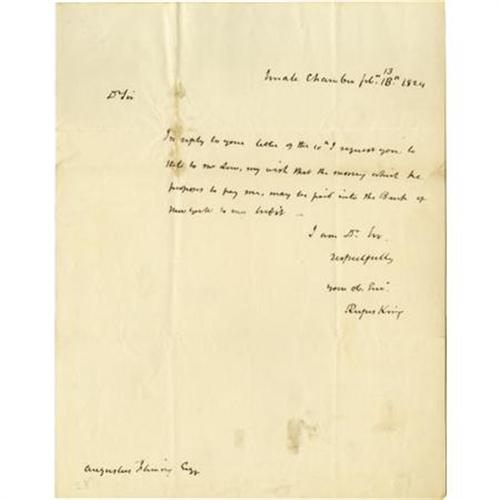 Senate Chamber feb. 13 18th 1824
Dr Sir
In reply to your letter of the 10th I request you to
state to Mr Low, my wish that the money which he
proposes to pay me, may be paid into the Bank of
New York to my credit
I am Dr Sir
respectfully
your ob. Serv.
Rufus King
Augustus Fleming Esqr